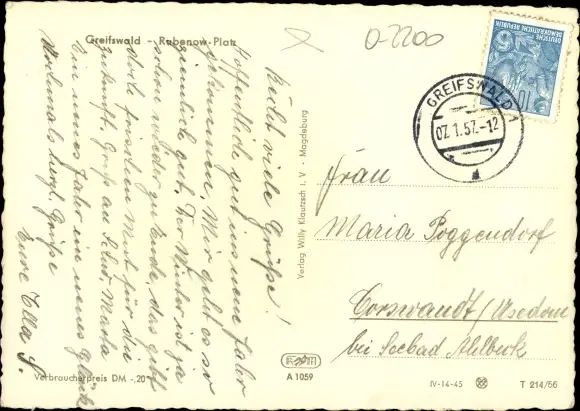 Greifswald - Rubenow-Platz
0-2200
DEUTSCHE
DEMOKRATISCHE REPUBLIK
10
GREIFSWALD 1
07.1.57.-12
a
Recht viele Grüße!
Hoffentlich gut ins neue Jahr
gekommen. Mir geht es so
ziemlich gut. Der Winter ist ja
schon wieder zu Ende, das gibt
doch frischen Mut für die
Zukunft. Gruß an Martha
Ein neues Jahr ein neues Glück
Nochmals herzl. Grüße
Eure Ella S.
Verlag Willy Klautzsch i. V. - Magdeburg
Frau
Maria Poggendorf
Corswandt/Usedom
bei Seebad Ahlbeck
Verbraucherpreis DM -,20
A 1059
IV-14-45
T 214/56